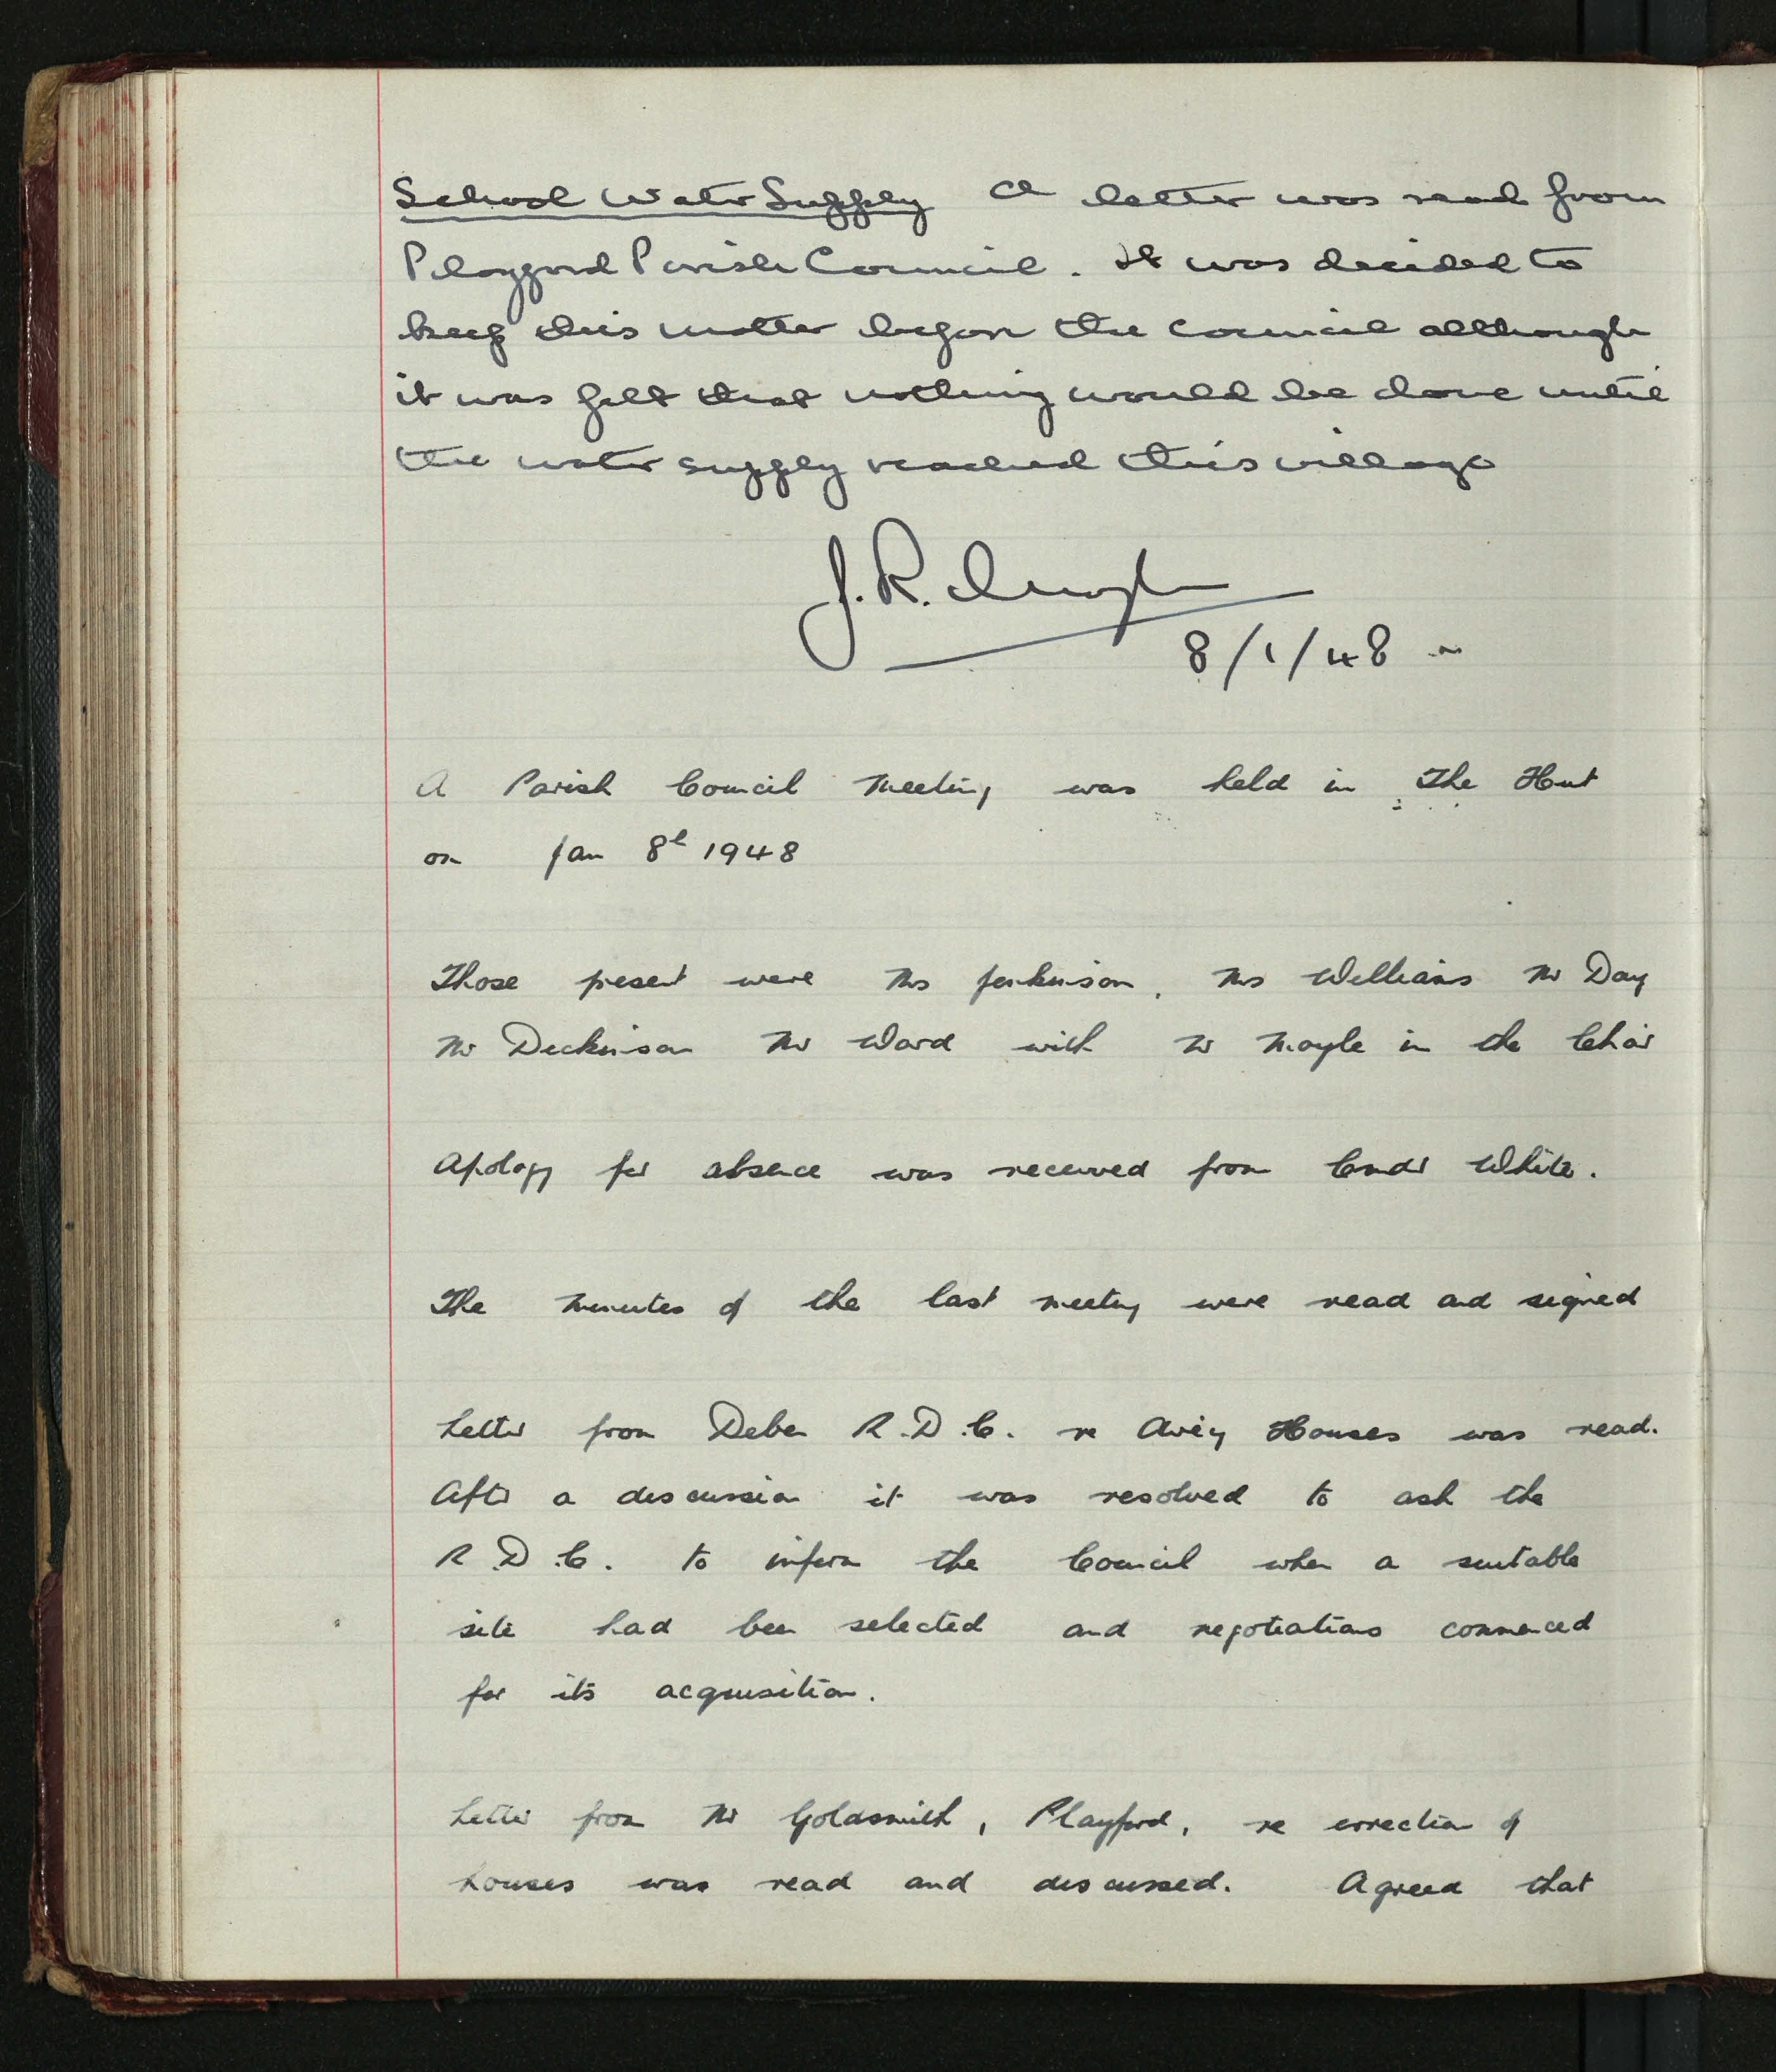 School Water Supply A letter was read from
Playford Parish Council. It was decided to
keep this matter before the council although
it was felt that nothing would be done until
the water supply reached this village
J. R.
8/1/48
A Parish Council Meeting was held in The Hut
on Jan 8th 1948
Those present were Mrs Jenkinson, Mrs Williams Mr Day
Mr Dickinson Mr Ward with Mr Moyle in the Chair
Apology for absence was received from Cmdr White.
The minutes of the last meeting were read and signed
Letter from Deben R.D.C. re Airey Houses was read.
After a discussion it was resolved to ask the
R.D.C. to inform the Council when a suitable
site had been selected and negotiations commenced
for its acquisition.
Letter from Mr Goldsmith, Playford, re errection of
houses was read and discussed. Agreed that